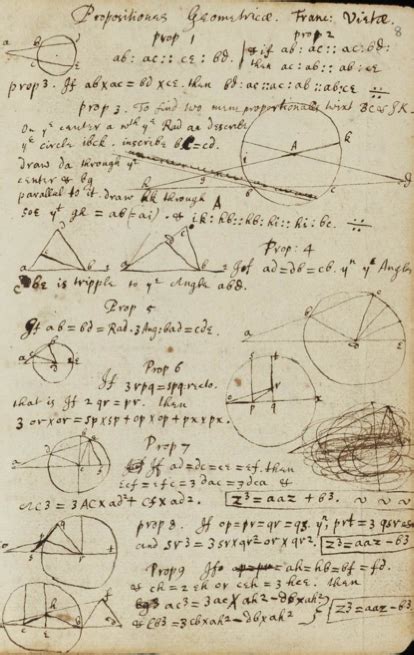 Propositiones Geometricæ. Franc: Vietæ.
8
prop 1
ab: ac:: ce: bd.
prop 2
& if ab: ac:: ac: bd:
then ac: ab:: ab: ce
prop 3. If ab x ac = bd x ce. then bd: ac :: ac: ab :: ab: ce
prop 3. To find two mean proportionalls twixt BC & gk.
On ye center a wth ye Rad an describe
ye circle ibck. inscribe bc = cd.
draw da through ye
center & bg
parallel to it. draw hk through A
soe yt gh = ab = ai) - & ik: hb :: hb: hi :: hi: bc.
Prop: 4
If ad = db = cb. yn ye Angle
cbe is tripple to ye Angle abd.
Prop 5
If ab = bd = Rad. 3 Ang: bad = cde.
Prop 6
If 3 rpq = spq: recto.
that is If 2 qr = pr. then
3 or x or = sp x sp + op x op + px x px.
Prop 7
If ad = dc = ce = ef. then
ecf = efc = 3 dac = 3 dca &
ac3 = 3 AC x ad2 + cf x ad2.
z3 = aaz + b3.
prop 8. If op = pr = qr = qs. yn prt = 3 qsr
and sr3 = 3 sr x qr2 or x qr2.
z3 = aaz - b3
Prop 9 If ah = hb = bf = fd.
& ch = 2 eh or ceh = 3 hce. then
ac3 = 3 ac x ah2 - db x ah2
& cb3 = 3 cb x ah2 - db x ah2
z3 = aaz - b3